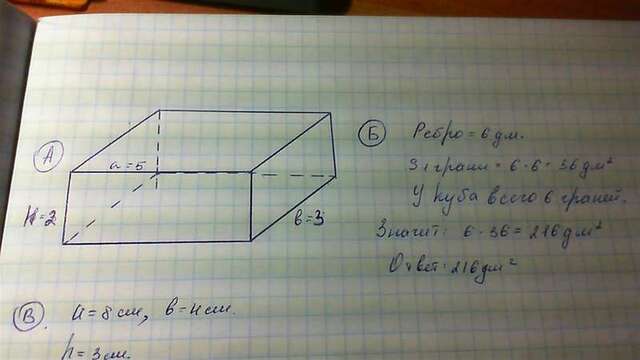 А
a=5
H=2
в=3
Б
Ребро = 6 дм.
S 1 грани = 6·6=36 дм²
У куба всего 6 граней.
Значит: 6·36=216 дм²
Ответ: 216 дм²
В
a=8 см, в=4 см.
h=3 см.